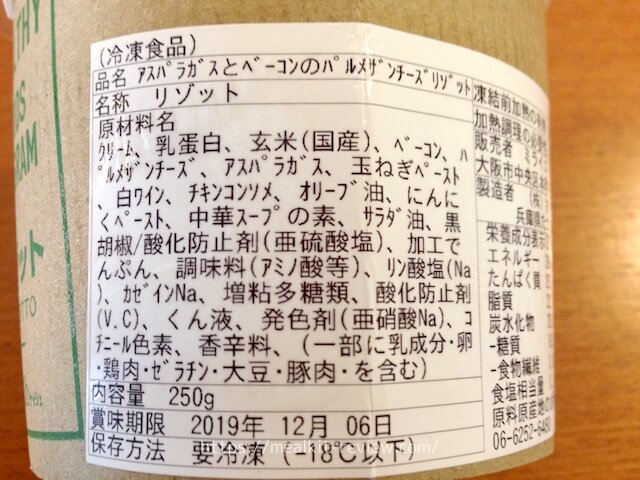 THY
GS
RAM
ット
TTO
(冷凍食品)
品名 ｱｽﾊﾟﾗｶﾞｽとﾍﾞｰｺﾝのﾊﾟﾙﾒｻﾞﾝﾁｰｽﾞﾘｿﾞｯﾄ
名称 リゾット
原材料名
ｸﾘｰﾑ、乳蛋白、玄米(国産)、ﾍﾞｰｺﾝ、ﾊ
ﾟﾙﾒｻﾞﾝﾁｰｽﾞ、ｱｽﾊﾟﾗｶﾞｽ、玉ねぎﾍﾟｰｽﾄ
、白ﾜｲﾝ、ﾁｷﾝｺﾝｿﾒ、ｵﾘｰﾌﾞ油、にんに
くﾍﾟｰｽﾄ、中華ｽｰﾌﾟの素、ｻﾗﾀﾞ油、黒
胡椒/酸化防止剤(亜硫酸塩)、加工で
んぷん、調味料(ｱﾐﾉ酸等)、ﾘﾝ酸塩(Na
)、ｶｾﾞｲﾝNa、増粘多糖類、酸化防止剤
(V.C)、くん液、発色剤(亜硝酸Na)、ｺ
ﾁﾆｰﾙ色素、香辛料、(一部に乳成分･卵
･鶏肉･ｾﾞﾗﾁﾝ･大豆･豚肉･を含む)
内容量 250g
賞味期限 2019年 12月 06日
保存方法 要冷凍 (-18℃以下)
凍結前加熱の有
加熱調理の必要
販売者
大阪市中央区
製造者 (株)
兵庫県
栄養成分表示
エネルギー
たんぱく質
脂質
炭水化物
-糖質
-食物繊維
食塩相当量
原料原産地
06-6252-6490
https://mealkit-review.com/